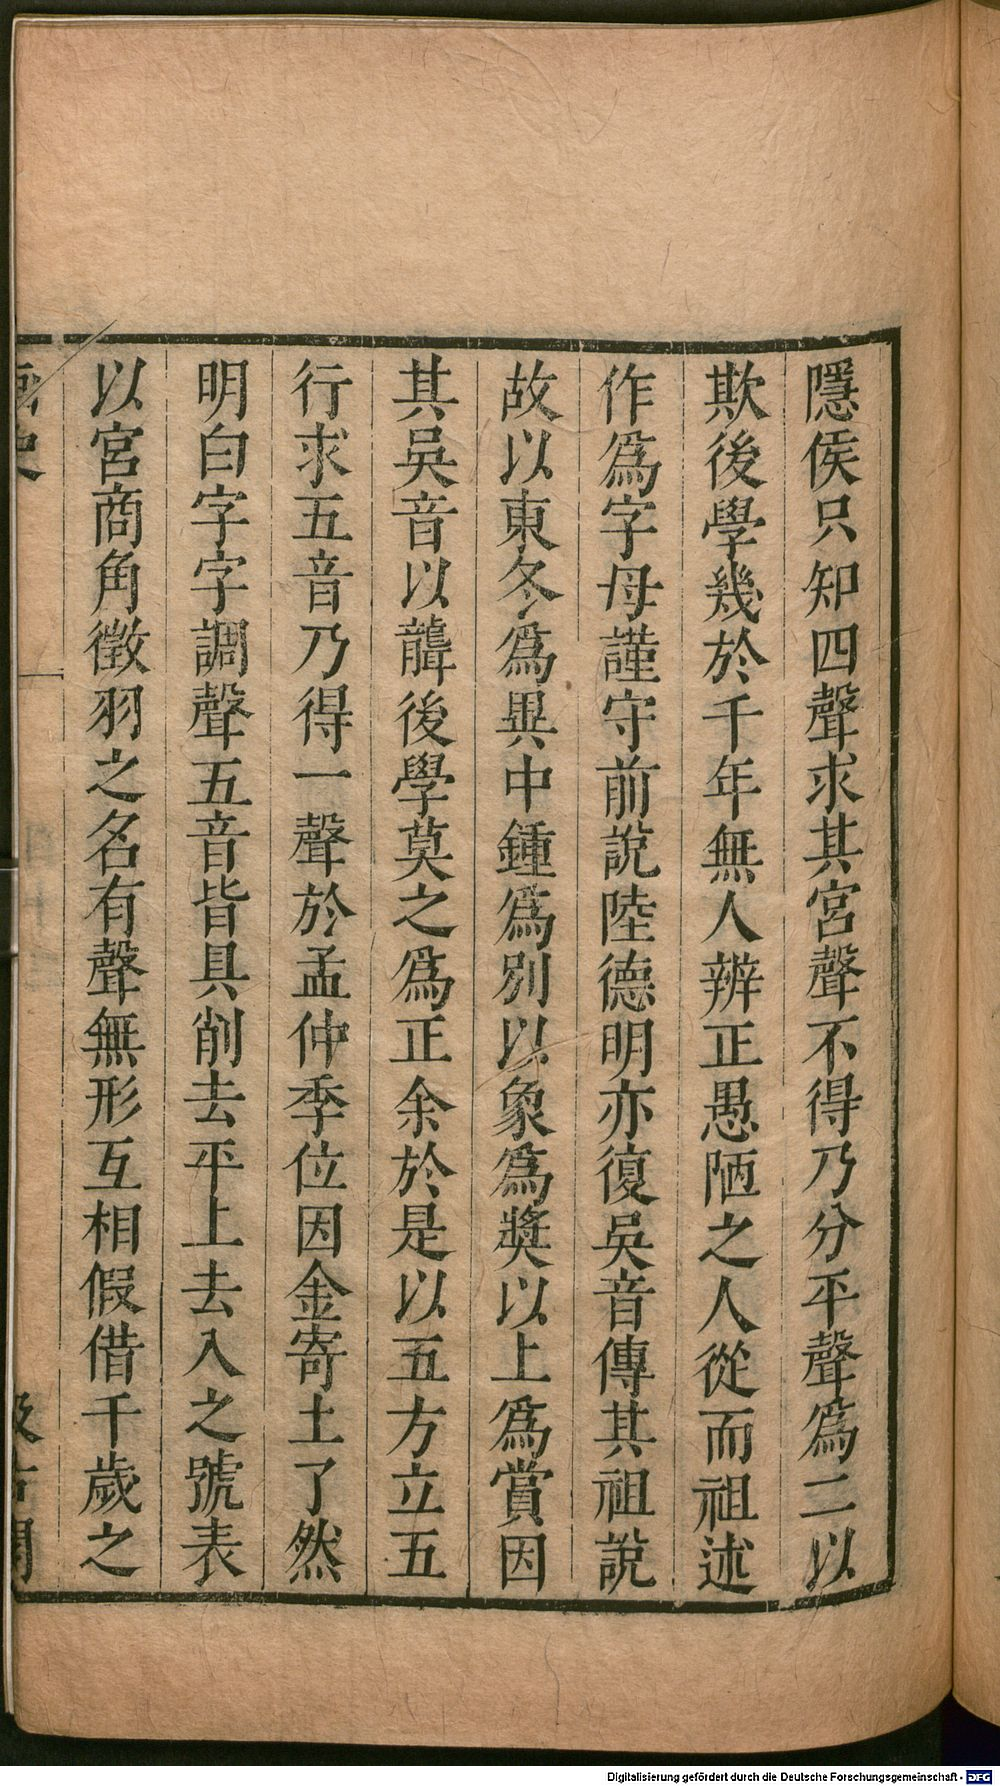 隱侯只知四聲求其宮聲不得乃分平聲爲二以
欺後學幾於千年無人辨正愚陋之人從而祖述
作爲字母謹守前說陸德明亦復吳音傳其祖說
故以東冬爲異中鍾爲別以象爲奬以上爲賞因
其吳音以聾後學莫之爲正余於是以五方立五
行求五音乃得一聲於孟仲季位因金寄土了然
明白字字調聲五音皆具削去平上去入之號表
以宮商角徵羽之名有聲無形互相假借千歲之
Digitalisierung gefördert durch die Deutsche Forschungsgemeinschaft - DFG